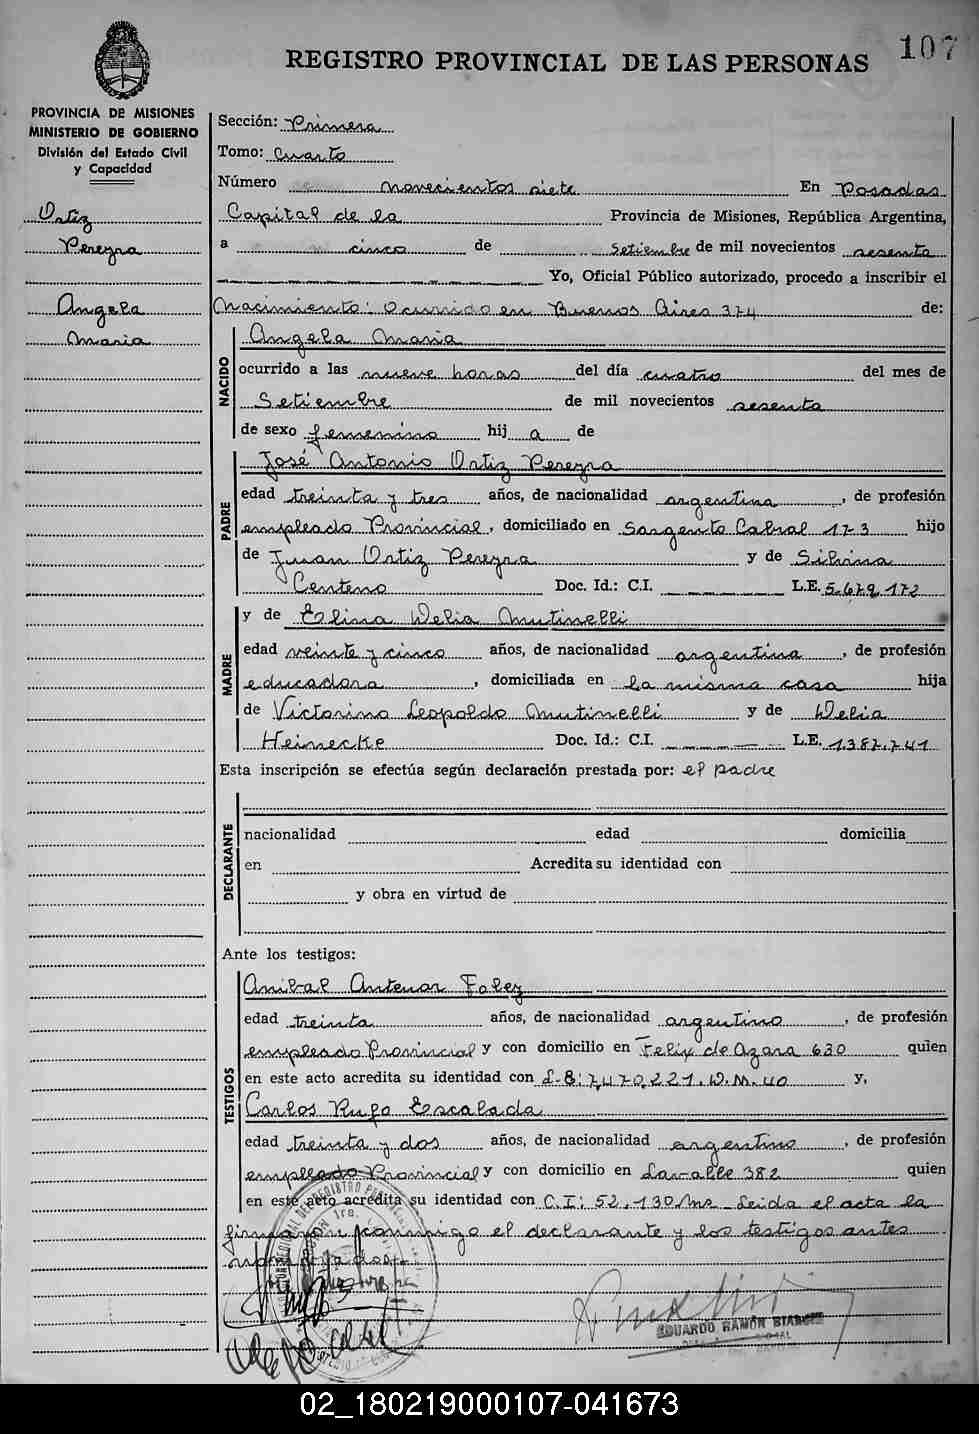 107
REGISTRO PROVINCIAL DE LAS PERSONAS
PROVINCIA DE MISIONES
MINISTERIO DE GOBIERNO
División del Estado Civil
y Capacidad
Ortiz
Pereyra
Angela
Maria
Sección: Primera
Tomo: Cuarto
Número novecientos siete En Posadas
Capital de la Provincia de Misiones, República Argentina,
a cinco de Setiembre de mil novecientos sesenta
Yo, Oficial Público autorizado, procedo a inscribir el
Nacimiento: Ocurrido en Buenos Aires 374 de:
NACIDO
Angela Maria
ocurrido a las nueve horas del día cuatro del mes de
Setiembre de mil novecientos sesenta
de sexo femenino hij a de
PADRE
José Antonio Ortiz Pereyra
edad treinta y tres años, de nacionalidad argentina, de profesión
empleado Provincial, domiciliado en Sargento Cabral 173 hijo
de Juan Ortiz Pereyra y de Silvina
Centeno Doc. Id.: C.I. L.E. 5.679.172
MADRE
y de Elina Delia Mutinelli
edad veinte y cinco años, de nacionalidad argentina, de profesión
educadora, domiciliada en la misma casa hija
de Victorino Leopoldo Mutinelli y de Delia
Heinecke Doc. Id.: C.I. L.E. 1.387.741
Esta inscripción se efectúa según declaración prestada por: el padre
DECLARANTE
nacionalidad edad domicilia
en Acredita su identidad con
y obra en virtud de
Ante los testigos:
TESTIGOS
Anibal Antenor Folez
edad treinta años, de nacionalidad argentino, de profesión
empleado Provincial y con domicilio en Felix de Azara 630 quien
en este acto acredita su identidad con L.E: 7.470.221. D.M. 40 y,
Carlos Rufo Escalada
edad treinta y dos años, de nacionalidad argentino, de profesión
empleado Provincial y con domicilio en Lavalle 382 quien
en este acto acredita su identidad con C.I: 52.130 Mns. Leida el acta la
firmaron conmigo el declarante y los testigos antes
EDUARDO RAMÓN
02_180219000107-041673